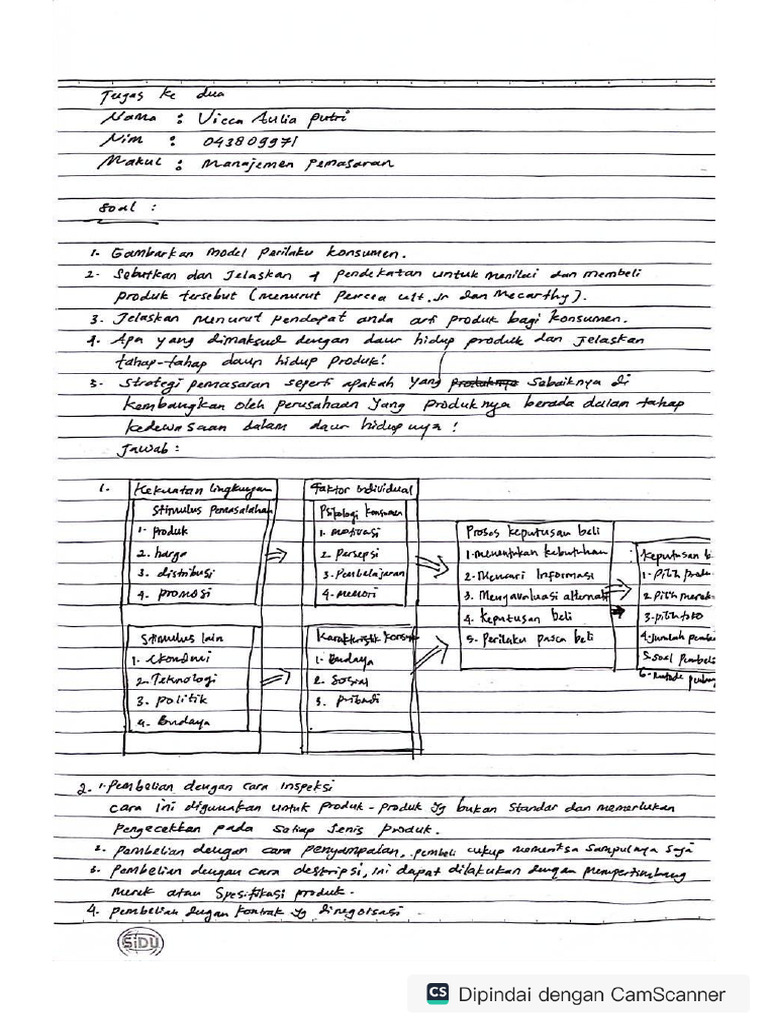 Tugas ke dua
Nama : Vicca Aulia putri
Nim : 043809971
Makul : Manajemen Pemasaran
Soal :
1. Gambarkan model Parilaku konsumen.
2. Sebutkan dan Jelaskan 4 pendekatan untuk menilai dan membeli
produk tersebut (menurut Perreault, Jr dan Mccarthy).
3. Jelaskan menurut pendapat anda arti produk bagi konsumen.
4. Apa yang dimaksud dengan daur hidup produk dan Jelaskan
tahap-tahap daur hidup Produk!
5. Strategi pemasaran seperti apakah yang Sebaiknya di
kembangkan oleh perusahaan yang produknya berada dalam tahap
kedewasaan dalam daur hidupnya!
Jawab :
1. Kekuatan lingkungan
Stimulus Pemasalahan
1. Produk
2. harga
3. distribusi
4. promosi
Stimulus lain
1. ekonomi
2. Teknologi
3. politik
4. Budaya
Faktor individual
Psikologi konsumen
1. motivasi
2. Persepsi
3. Pembelajaran
4. memori
Karakteristik konsum
1. Budaya
2. Sosial
3. pribadi
Proses keputusan beli
1. menentukan kebutuhan
2. Mencari Informasi
3. Mengavaluasi alternati
4. Keputusan beli
5. Perilaku pasca beli
Keputusan b
1. pilih produ
2. pilih merek
3. pilih toko
4. Jumlah pembe
5. saat pembeli
6. metode pemb
2. 1. Pembelian dengan cara inspeksi
cara ini digunakan untuk produk - produk yg bukan standar dan memerlukan
Pengecekkan pada Setiap Jenis produk.
2. pembelian dengan cara penyampaian, pembeli cukup memeriksa sampulnya saja
3. pembelian dengan cara deskripsi, ini dapat dilakukan dengan mempertimbang
merek atau Spesifikasi produk.
4. pembelian dengan kontrak yg dinegoisasi
SiDU
CS Dipindai dengan CamScanner